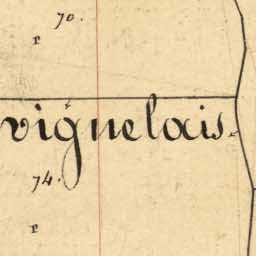 70.
P
vignelais.
74.
P